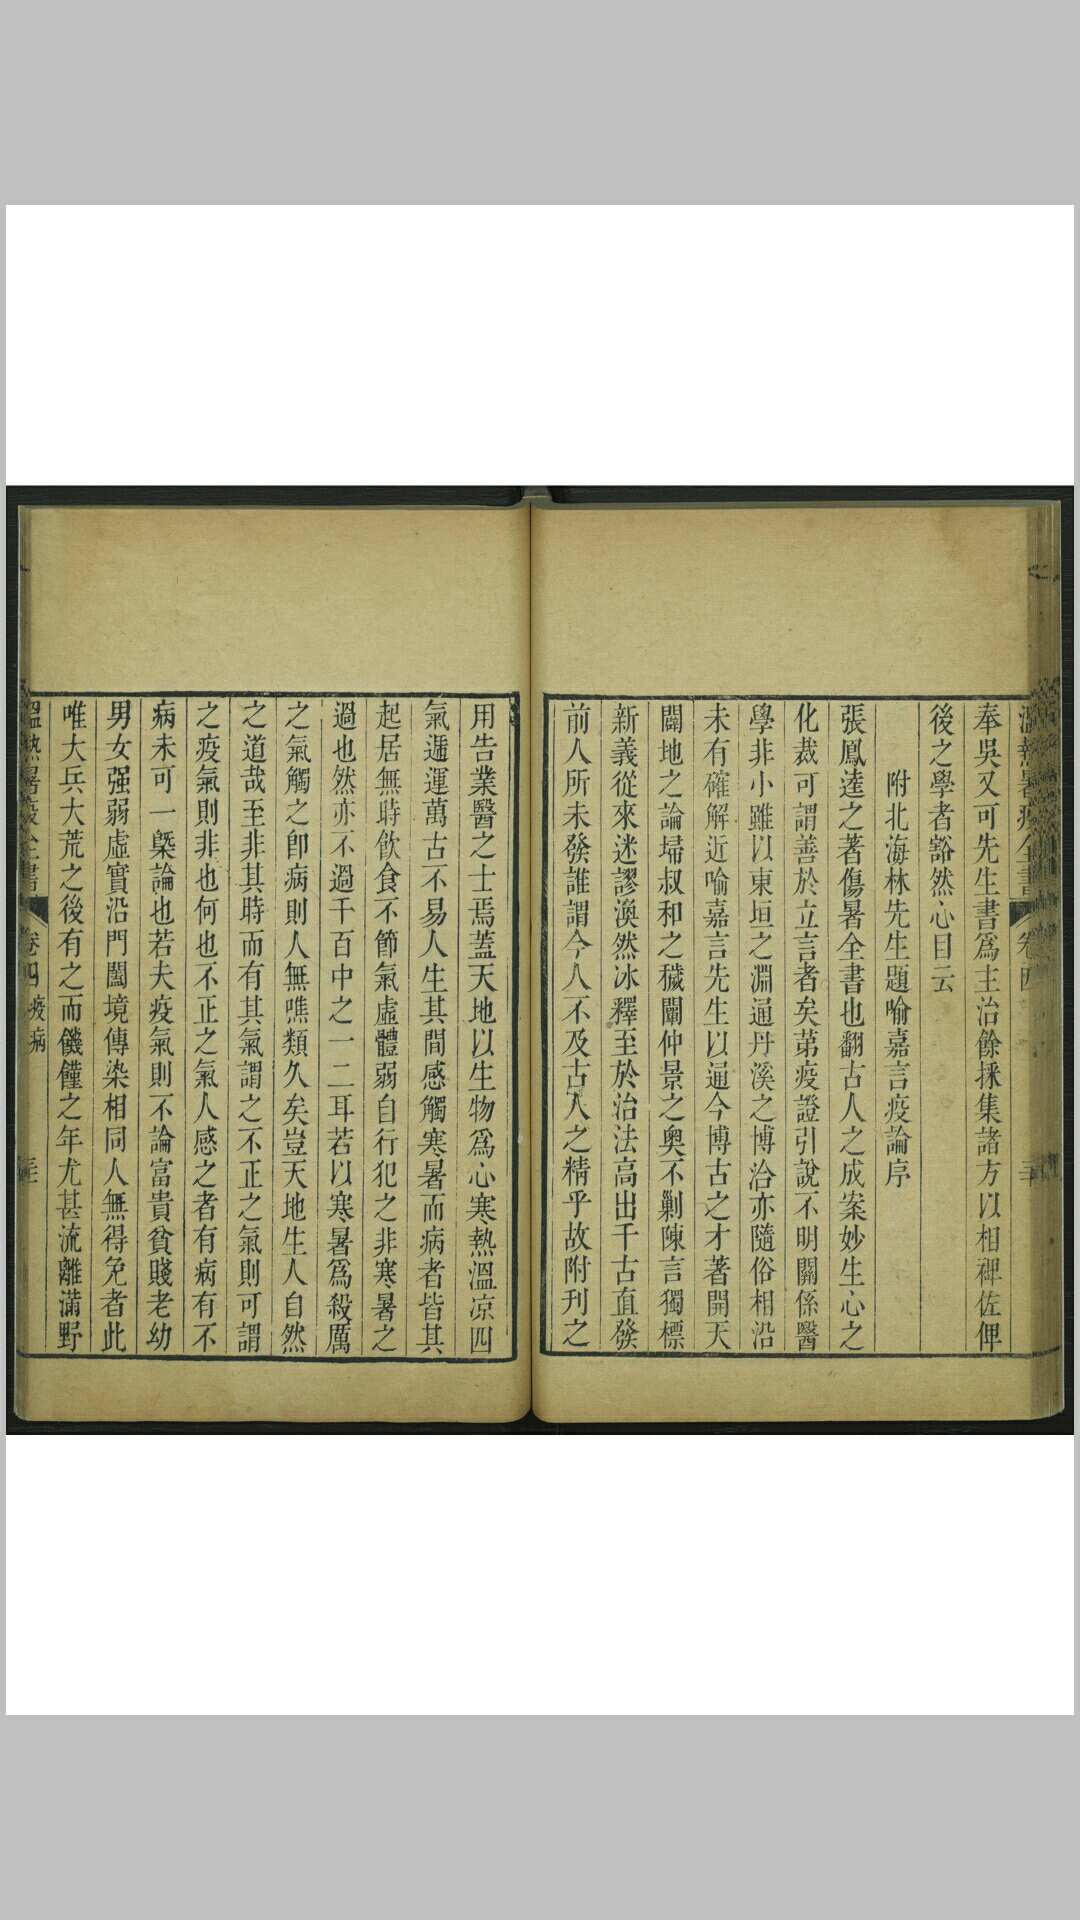 溫熱暑疫全書 卷四
奉吳又可先生書爲主治餘採集諸方以相裨佐俾
後之學者豁然心目云
附北海林先生題喻嘉言疫論序
張鳳逵之著傷暑全書也翻古人之成案妙生心之
化裁可謂善於立言者矣第疫證引說不明關係醫
學非小雖以東垣之淵通丹溪之博洽亦隨俗相沿
未有確解近喻嘉言先生以通今博古之才著開天
闢地之論埽叔和之穢闡仲景之奧不剿陳言獨標
新義從來迷謬渙然冰釋至於治法高出千古直發
前人所未發誰謂今人不及古人之精乎故附刊之
用告業醫之士焉蓋天地以生物爲心寒熱溫凉四
氣遞運萬古不易人生其間感觸寒暑而病者皆其
起居無時飲食不節氣虛體弱自行犯之非寒暑之
過也然亦不過千百中之一二耳若以寒暑爲殺厲
之氣觸之卽病則人無噍類久矣豈天地生人自然
之道哉至非其時而有其氣謂之不正之氣則可謂
之疫氣則非也何也不正之氣人感之者有病有不
病未可一槩論也若夫疫氣則不論富貴貧賤老幼
男女强弱虛實沿門闔境傳染相同人無得免者此
唯大兵大荒之後有之而饑饉之年尤甚流離滿野
溫熱暑疫全書 卷四 疫病